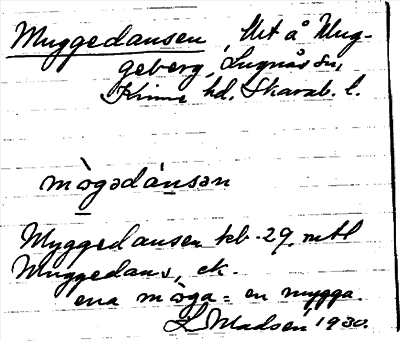 Muggedansen Ut å Mug-
geberg, Lugnås sn,
Kinne hd. Skarab. l.
mògədánsən
Myggedansen kb. 29, mtl
Muggedans, ek.
ena mòga = en mygga.
L Madsén 1930.